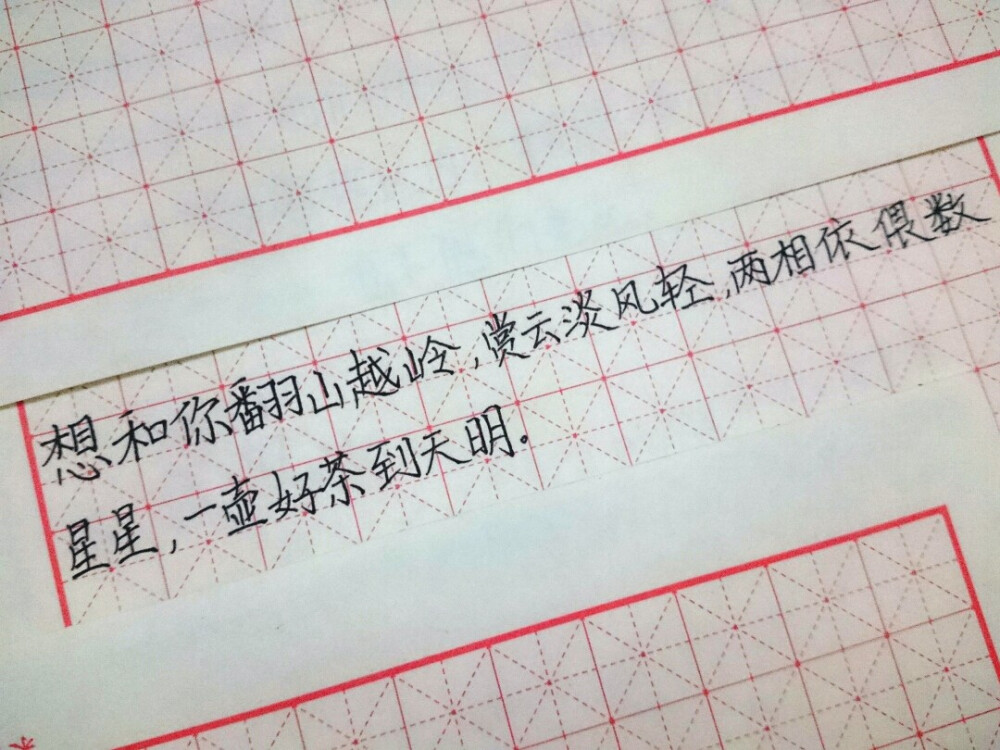 想和你翻山越岭,赏云淡风轻,两相依偎数
星星,一壶好茶到天明。